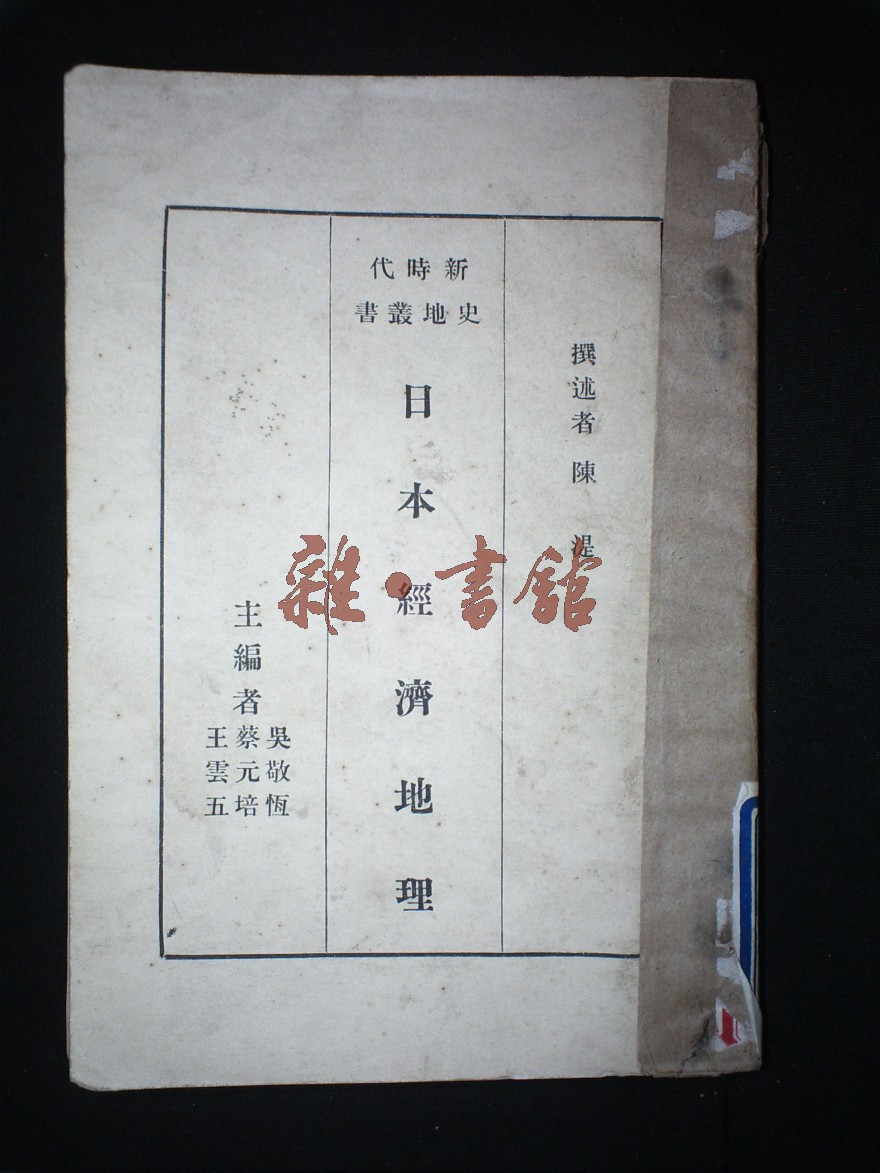 撰述者 陳湜
新時代
史地叢書
日本經濟地理
主編者
吳敬恆
蔡元培
王雲五
雜·書館